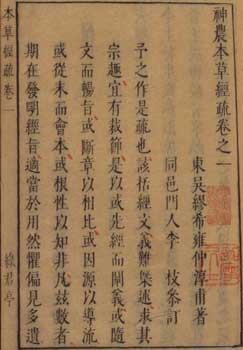 神農本草經疏卷之一
東吳繆希雍仲淳甫著
同邑門人李枝叅訂
予之作是疏也該括經文義難槩述求其
宗趣宜有裁節是以或先經而闡義或隨
文而暢旨或斷章以相比或因源以導流
或從末而會本或根性以知非凡玆數者
期在發明經旨適當於用然懼偏見多遺
本草經疏卷一
綠君亭